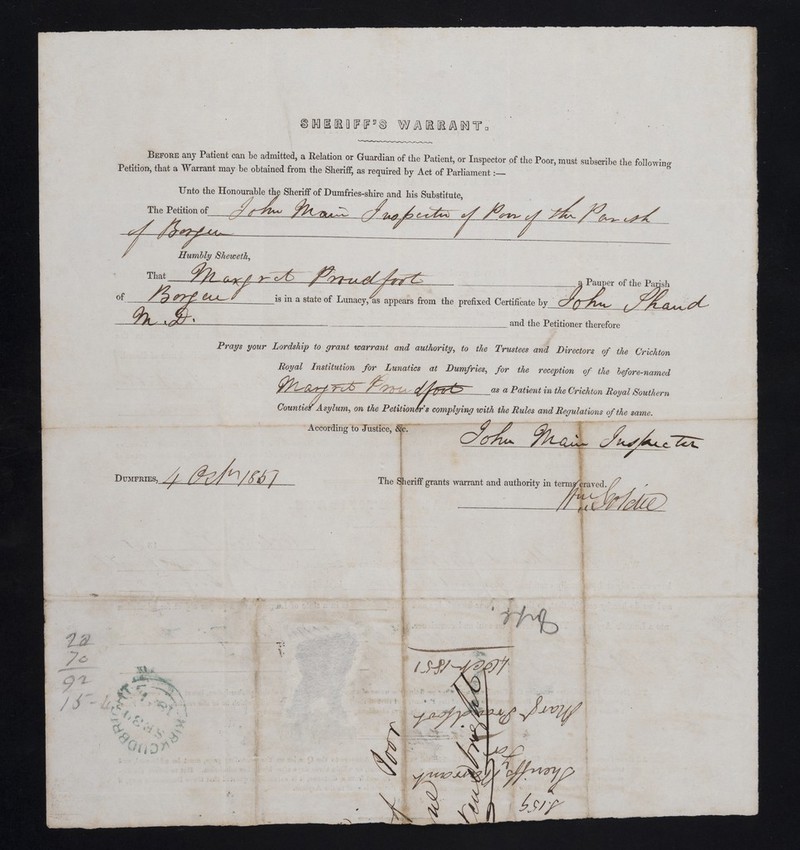 SHERIFF'S WARRANT.
BEFORE any Patient can be admitted, a Relation or Guardian of the Patient, or Inspector of the Poor, must subscribe the following
Petition, that a Warrant may be obtained from the Sheriff, as required by Act of Parliament :—
Unto the Honourable the Sheriff of Dumfries-shire and his Substitute,
The Petition of John Main Inspector of Poor of the Parish
of Borgue
Humbly Sheweth,
That Margret Proudfoot a Pauper of the Parish
of Borgue is in a state of Lunacy, as appears from the prefixed Certificate by John Shand
M.D. and the Petitioner therefore
Prays your Lordship to grant warrant and authority, to the Trustees and Directors of the Crichton
Royal Institution for Lunatics at Dumfries, for the reception of the before-named
Margret Proudfoot as a Patient in the Crichton Royal Southern
Counties' Asylum, on the Petitioner's complying with the Rules and Regulations of the same.
According to Justice, &c.
John Main Inspector
DUMFRIES, 4 Octr 1851 The Sheriff grants warrant and authority in terms craved.
Wm Goldie
22
70
92
KIRKCUDBRIGHT
4 Oct 1851
Marg Proudfoot
for
Sheriff's Warrant
Poor